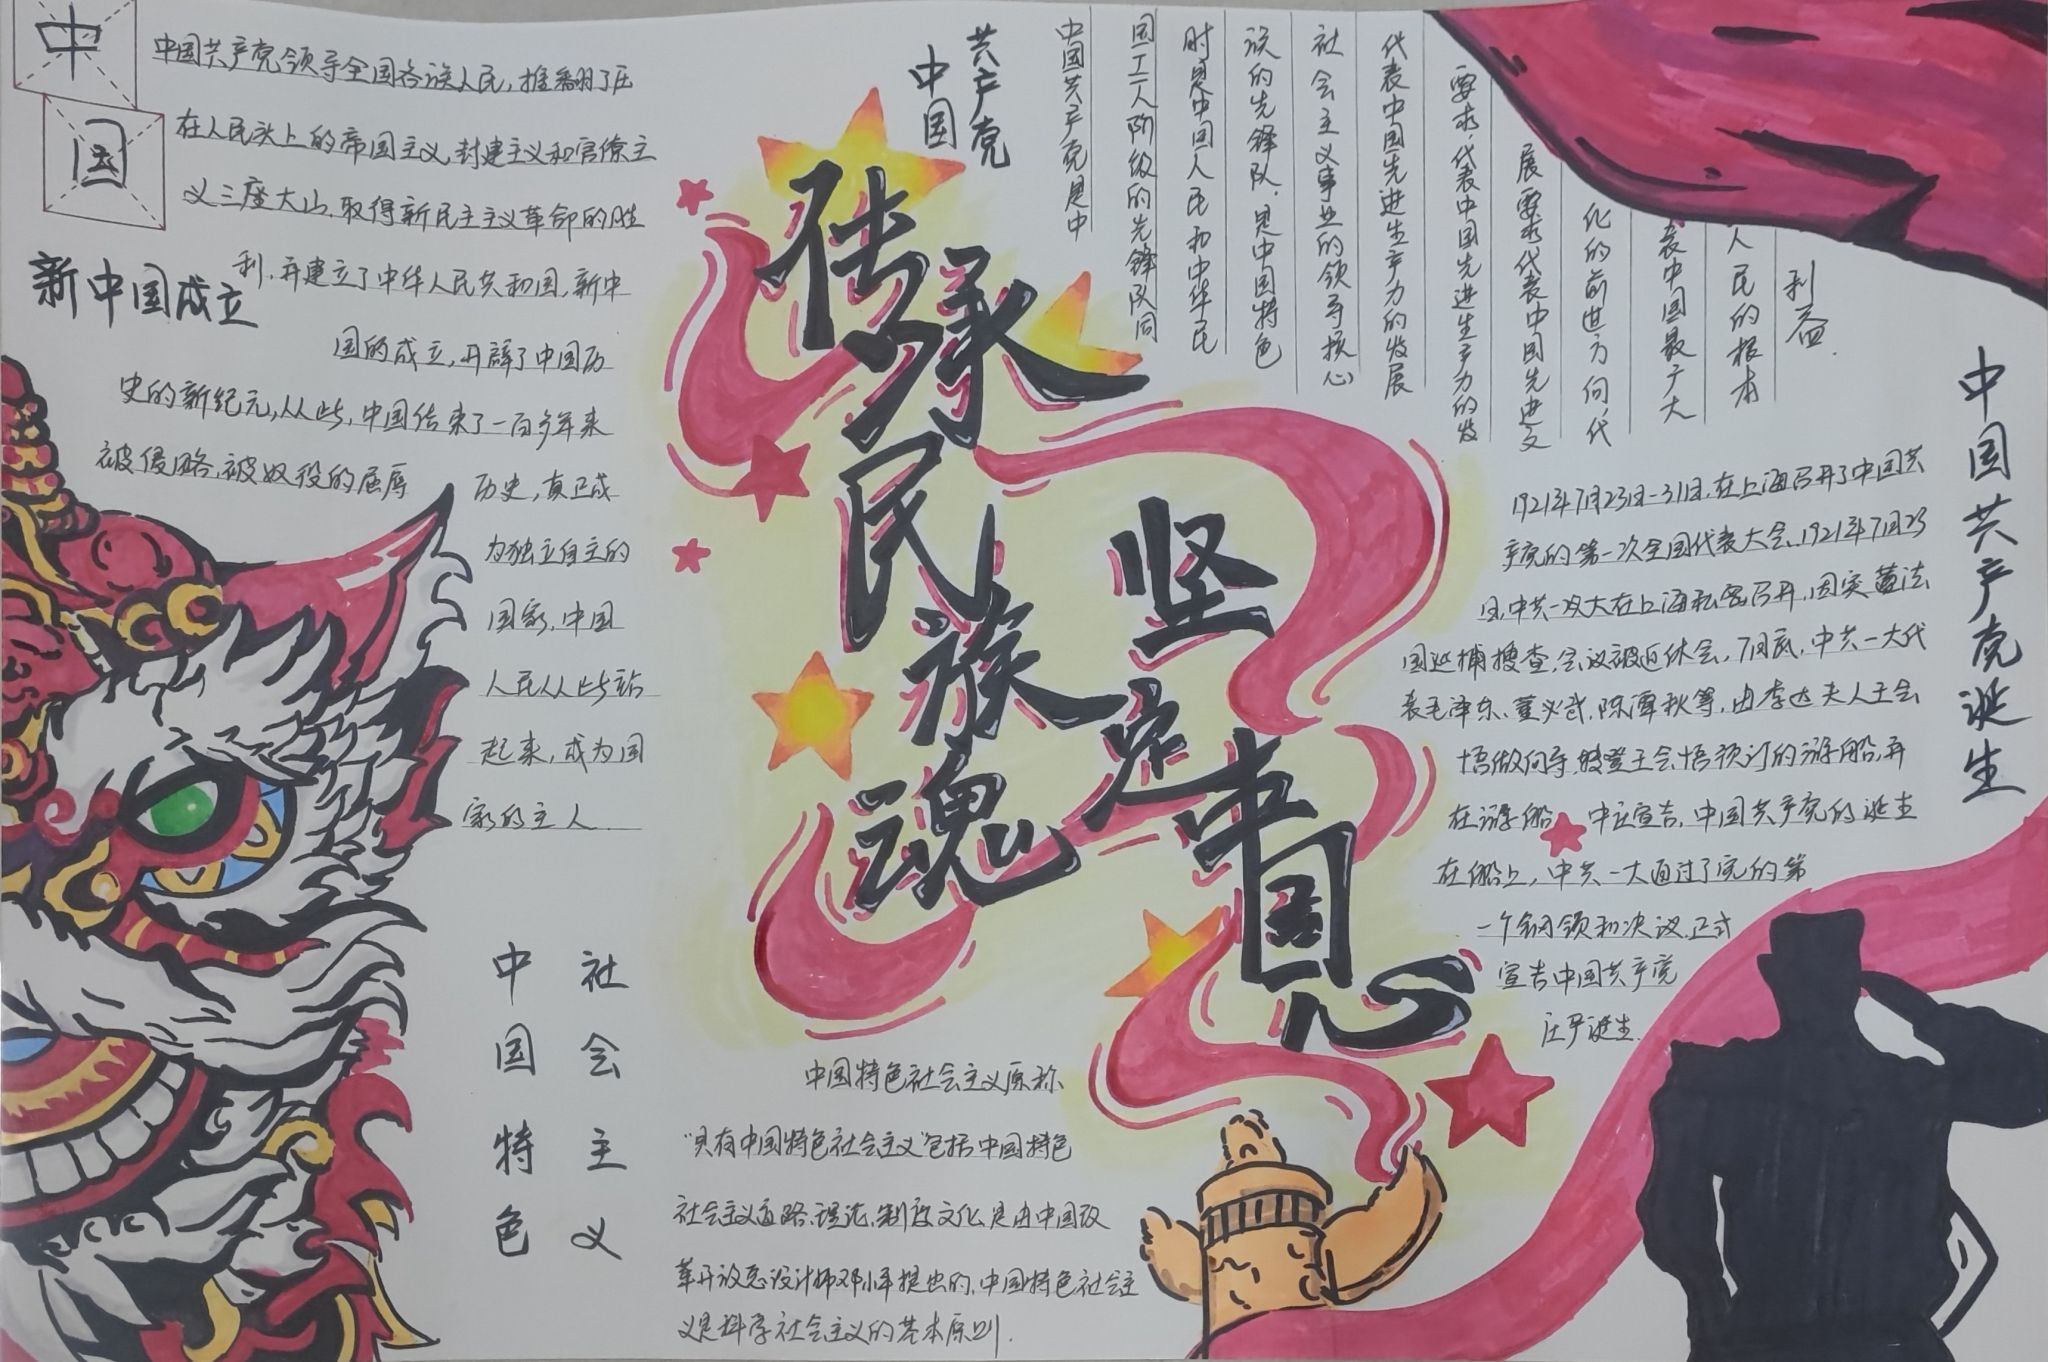 中
国
中国共产党领导全国各族人民,推翻了压
在人民头上的帝国主义,封建主义和官僚主
义三座大山,取得新民主主义革命的胜
利,并建立了中华人民共和国,新中
国的成立,开辟了中国历
史的新纪元,从此,中国结束了一百多年来
被侵略,被奴役的屈辱
历史,真正成
为独立自主的
国家,中国
人民从此站
起来,成为国
家的主人
新中国成立
传承
民族
魂
坚定
中国
心
中国
共产党
中国共产党是中
国工人阶级的先锋队同
时是中国人民和中华民
族的先锋队,是中国特色
社会主义事业的领导核心
代表中国先进生产力的发展
要求,代表中国先进生产力的发
展要求代表中国先进文
化的前进方向代
表中国最广大
人民的根本
利益.
中国共产党诞生
1921年7月23日-31日,在上海召开了中国共
产党的第一次全国代表大会,1921年7月23
日,中共一次大在上海私密召开,因突遭法
国巡捕搜查,会议被迫休会,7月底,中共一大代
表毛泽东、董必武,陈潭秋等,由李达夫人王会
悟做向导,登王会悟预订的游船,并
在游船中正宣告,中国共产党的诞生
在船上,中共一大通过了党的第
一个纲领和决议正式
宣告中国共产党
庄严诞生.
中国特色
社会主义
中国特色社会主义原称
"具有中国特色社会主义"包括中国特色
社会主义道路、理论、制度文化,是由中国改
革开放总设计师邓小平提出的,中国特色社会主
义是科学社会主义的基本原则.